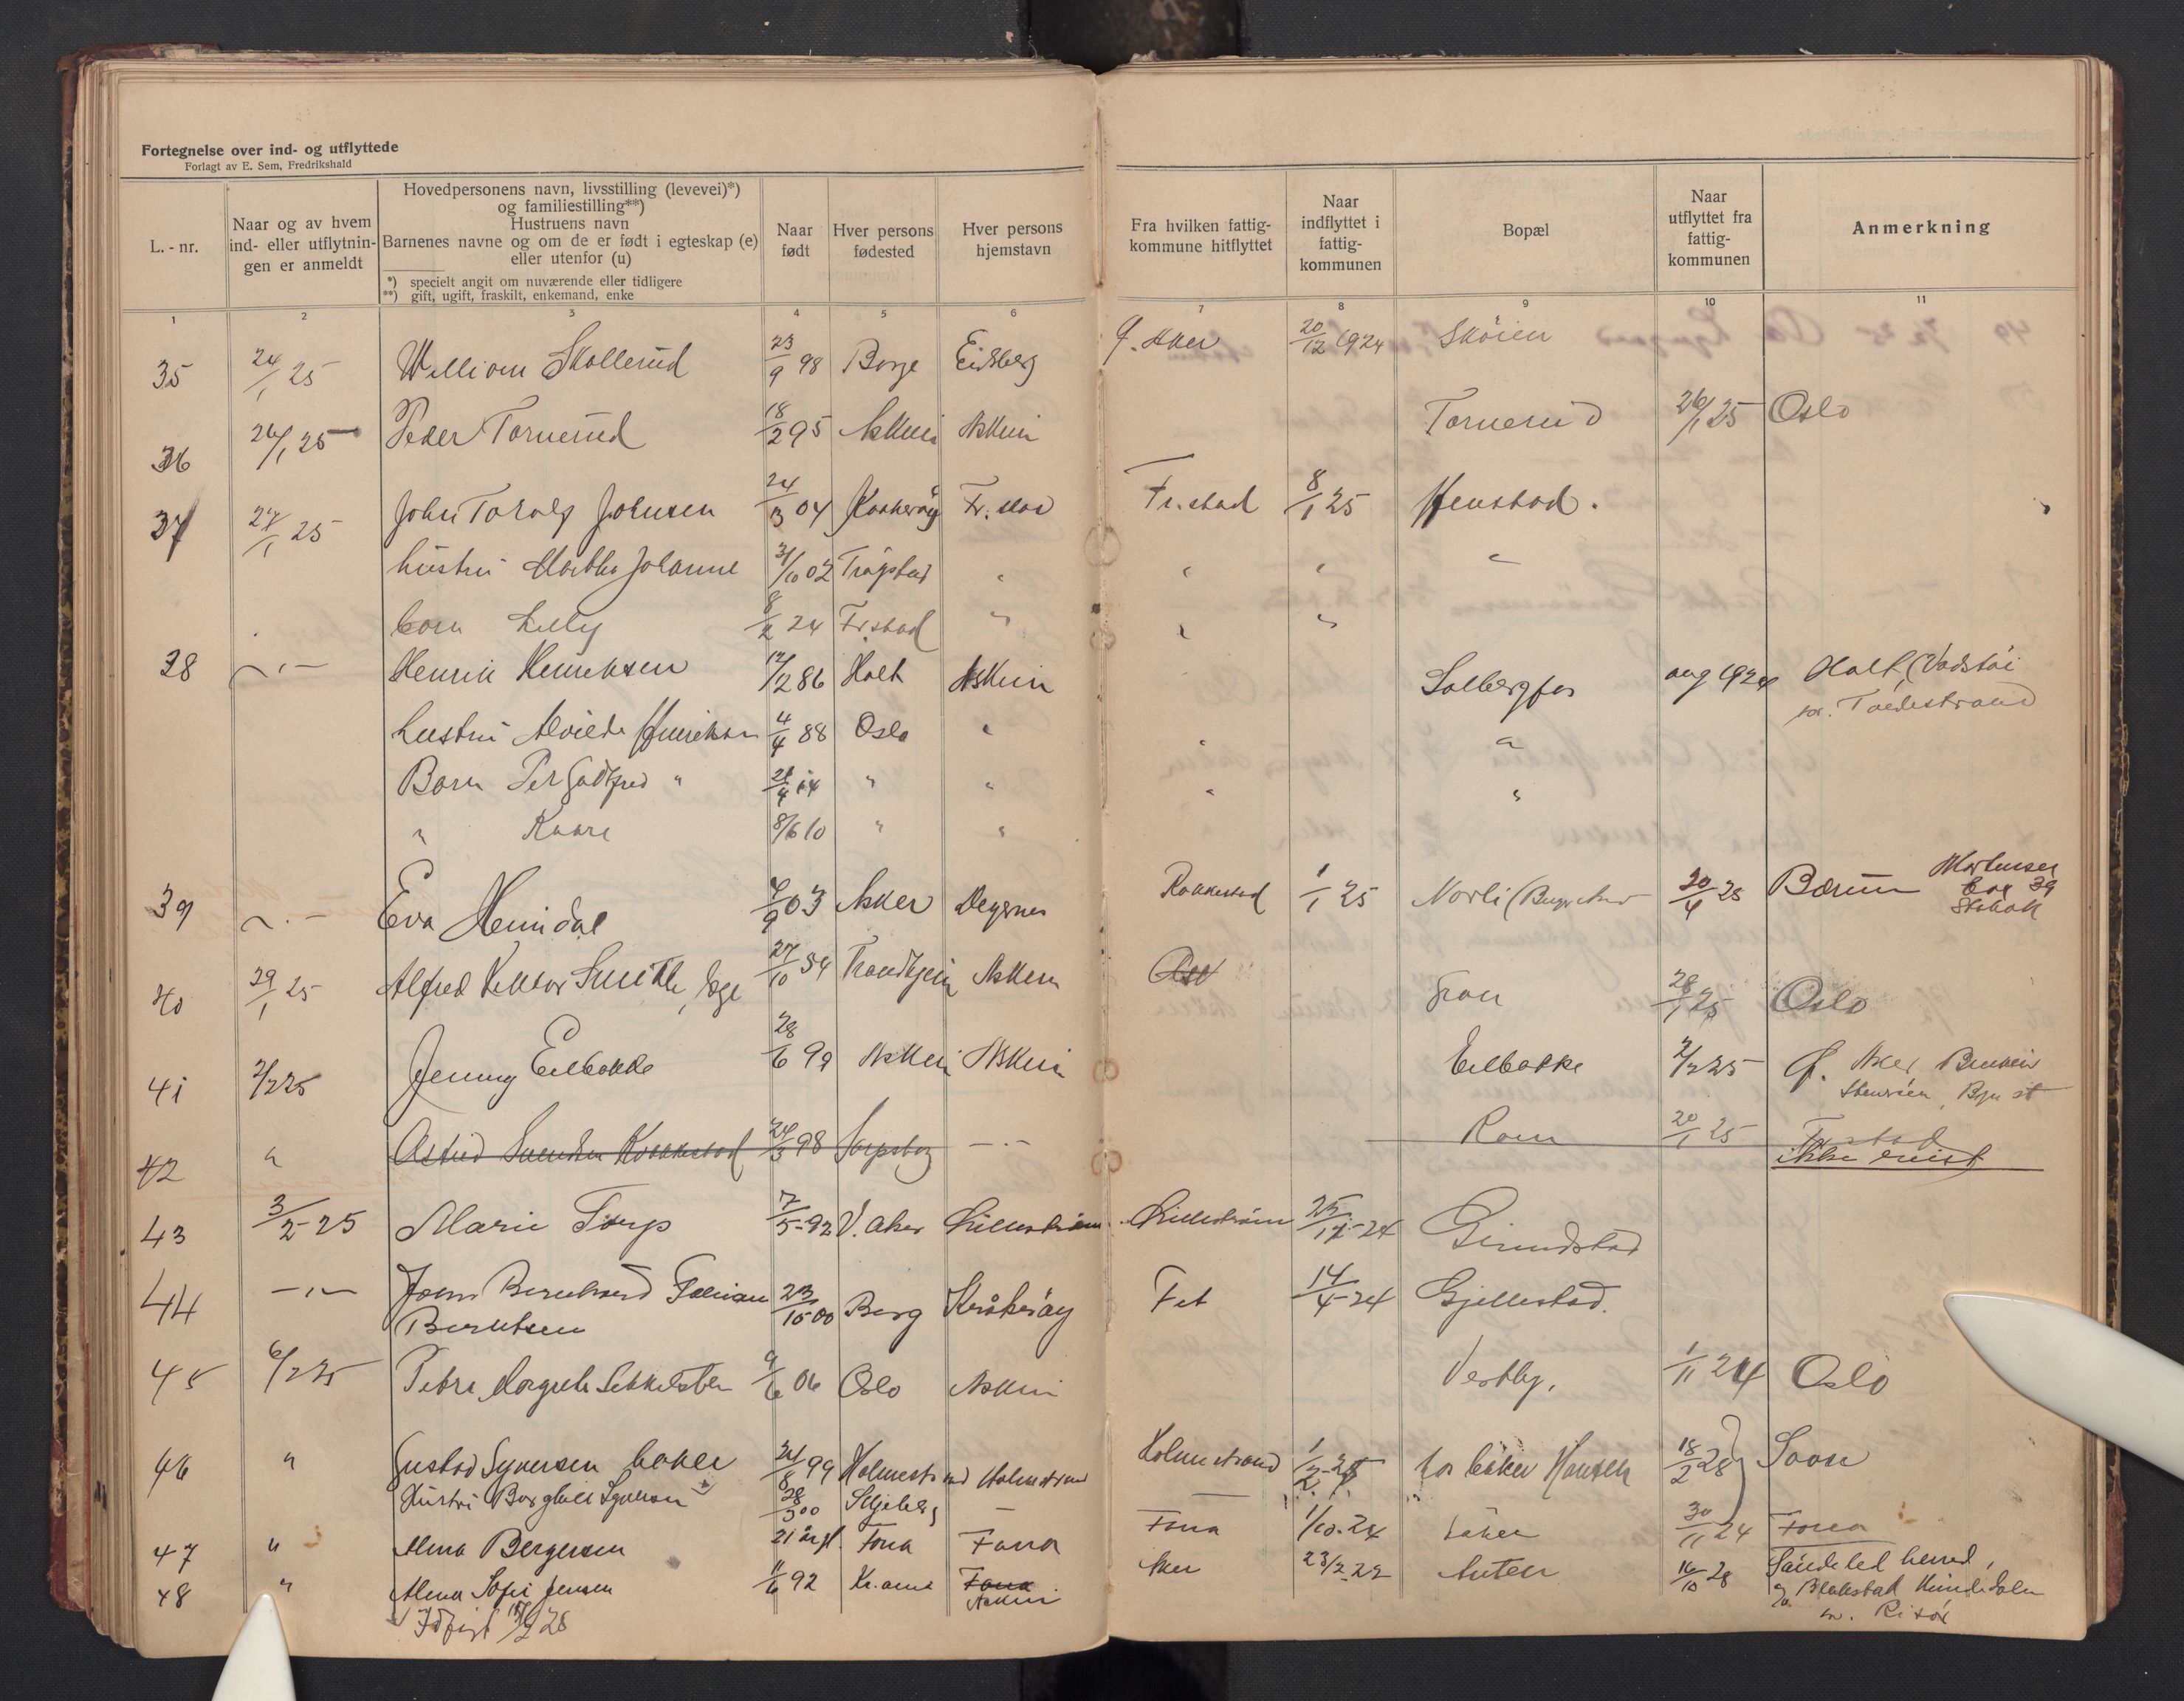 Fortegnelse over ind- og utflyttede
Forlagt av E. Sem, Fredrikshald
L. - nr.
Naar og av hvem
ind- eller utflytnin-
gen er anmeldt
Hovedpersonens navn, livsstilling (levevei)*)
og familiestilling**)
Hustruens navn
Barnenes navne og om de er født i egteskap (e)
eller utenfor (u)
*) specielt angit om nuværende eller tidligere
**) gift, ugift, fraskilt, enkemand, enke
Naar
født
Hver persons
fødested
Hver persons
hjemstavn
Fra hvilken fattig-
kommune hitflyttet
Naar
indflyttet i
fattig-
kommunen
Bopæl
Naar
utflyttet fra
fattig-
kommunen
Anmerkning
1 2 3 4 5 6 7 8 9 10 11
35 24/1 25 William Skollerud 23/9 98 Borge Eidsberg Ø. Aker 20/12 1924 Skøien
36 26/1 25 Peder Tornerud 18/2 95 Askim Askim Tornerud 26/1 25 Oslo
37 27/1 25 John Toralf Johnsen 24/3 04 Kraakerøy Fr.stad Fr.stad 8/1 25 Henstad.
hustru Martha Johanne 31/10 02 Trøgstad " " " "
barn Lilly 8/2 24 Fr.stad " " "
38 — " — Henrik Henriksen 12/12 86 Holt Askim Solbergfos aug 1924 Holt, (Vadstøi
pr. Tvedestrand
hustru Alvilde Henriksen 4/4 88 Oslo " " "
Barn Per Godtfred " 21/4 14 " " " "
" Kaare 8/6 10 " "
39 — " — Eva Heimdal 7/9 03 Asker Degernes Rakkestad 1/1 25 Norli 20/4 28 Bærum Mortensen
box 39
Stabæk
40 29/1 25 Alfred Smith, læge 27/10 54 Trondhjem Askim Gran 28/1 25 Oslo
41 2/2 25 Jenny Eilbakke 28/6 99 Askim Askim Eilbakke 2/2 25 Ø. Aker
Bryn st
42 " Astrid Svendsen 24/3 98 Sarpsborg — " — Rom 20/1 25 Fr.stad
ikke reist
43 3/2-25 Marie Torp 7/5-92 V. Aker Lillestrøm Lillestrøm 25/11-24 Grindstad
44 — " — Bernhard
Berntsen 23/10 00 Berg Kråkerøy Fet 14/4-24 Gjellestad.
45 6/2 25 Petra Margrethe 9/6 06 Oslo Askim Vestby. 1/11 24 Oslo
46 " Gustav Syversen baker 24/8 99 Holmestrand Holmestrand Holmestrand hos baker Hansen 18/2 28 Soon
Hustru Borghild Syversen 28/3 00 Skjeberg —
47 " Alma Bergersen 21 år gl. Fana Fana Fana 1/10-24 30/11 24 Fana
48 " Alma Sofie Jensen 11/6 92 Kr.ania Fana
Askim
Aker 23/2-22 16/10 28 Søndeled herred,
pr. Risør